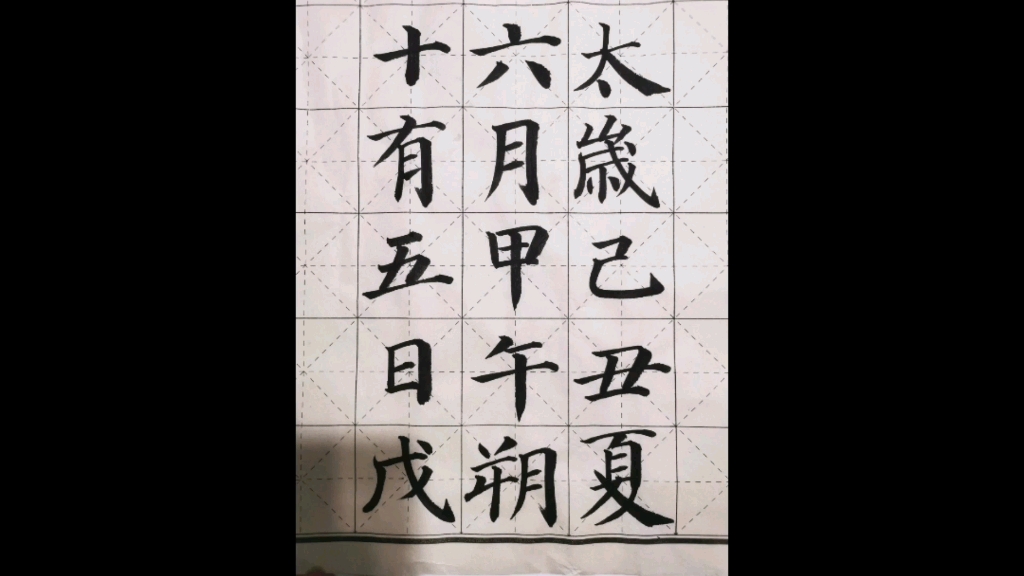 太歳己丑夏
六月甲午朔
十有五日戊